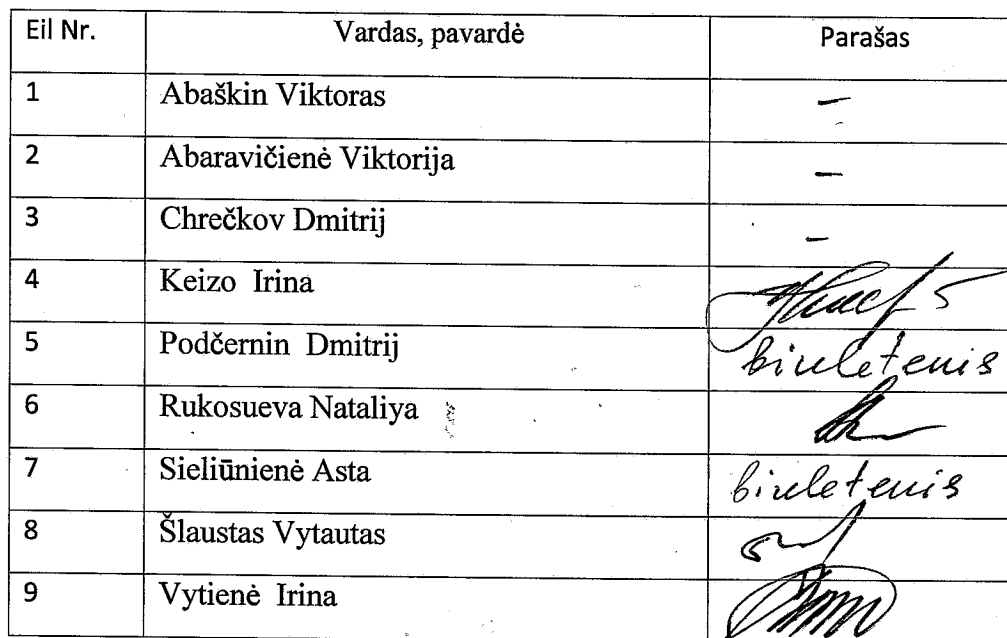 Eil Nr. Vardas, pavardė Parašas
1 Abaškin Viktoras –
2 Abaravičienė Viktorija –
3 Chrečkov Dmitrij –
4 Keizo Irina
5 Podčernin Dmitrij biuletenis
6 Rukosueva Nataliya
7 Sieliūnienė Asta biuletenis
8 Šlaustas Vytautas
9 Vytienė Irina